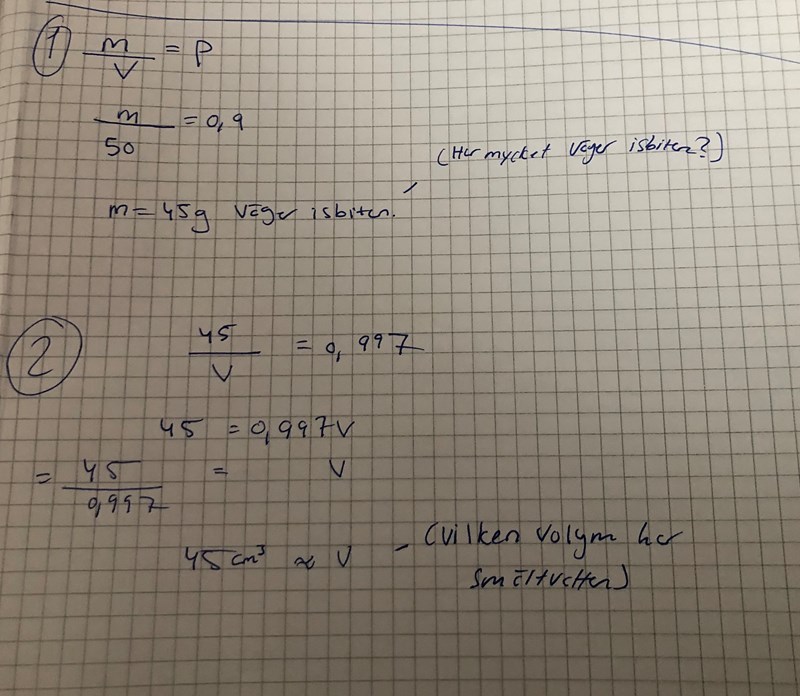 1 m/V = P
m/50 = 0,9
(Hur mycket väger isbiten?)
m = 45g väger isbiten.
2 45/V = 0,997
45 = 0,997V
= 45/0,997 = V
45 cm³ ≈ V - (vilken volym har
smältvatten)